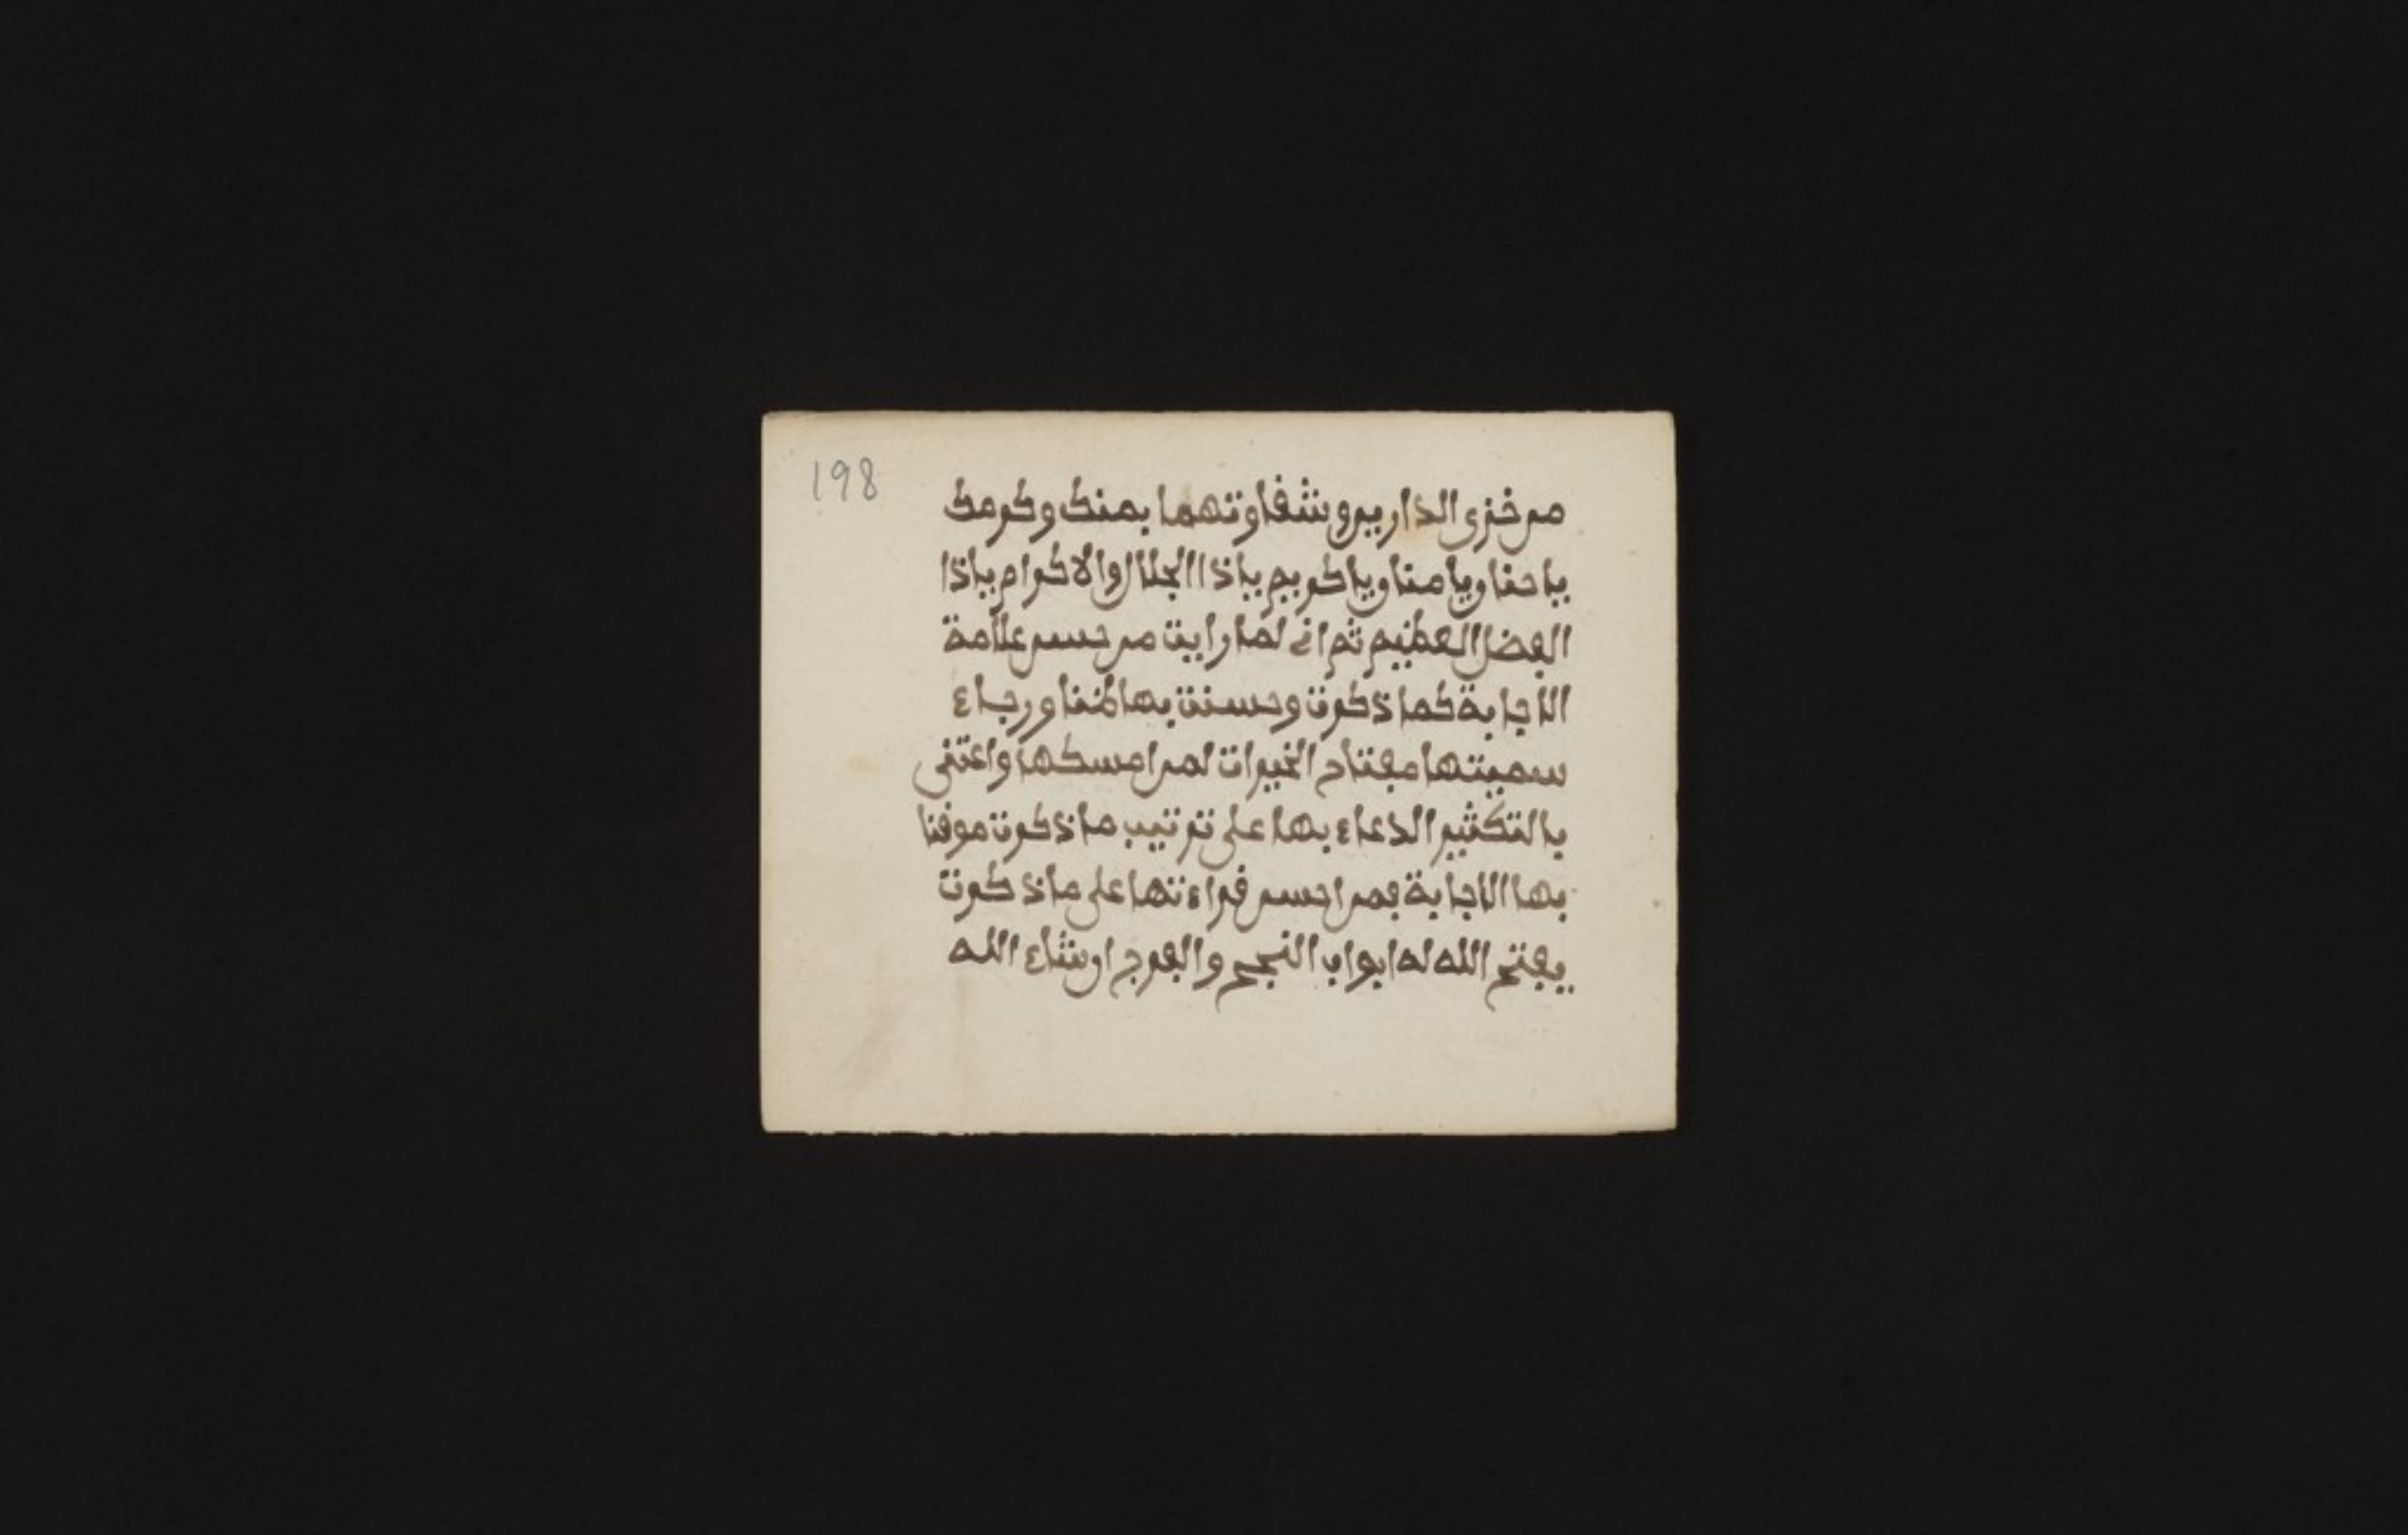 198
من خزى الدارين وشقاوتهما بمنك وكرمك
يا حنان ويا منان ويا كريم يا ذا الجلال والاكرام يا ذا
الفضل العظيم ثم انى لما رايت من حسن علامة
الاجابة كما ذكرت وحسنت بها ورجاء
سميتها مفتاح الخيرات لمن امسكها واعتنى
بالتكثير الدعاء بها على ترتيب ما ذكرت موقنا
بها الاجابة فمن احسن قراءتها على ما ذكرت
يفتح الله له ابواب النجح والفرج ان شاء الله